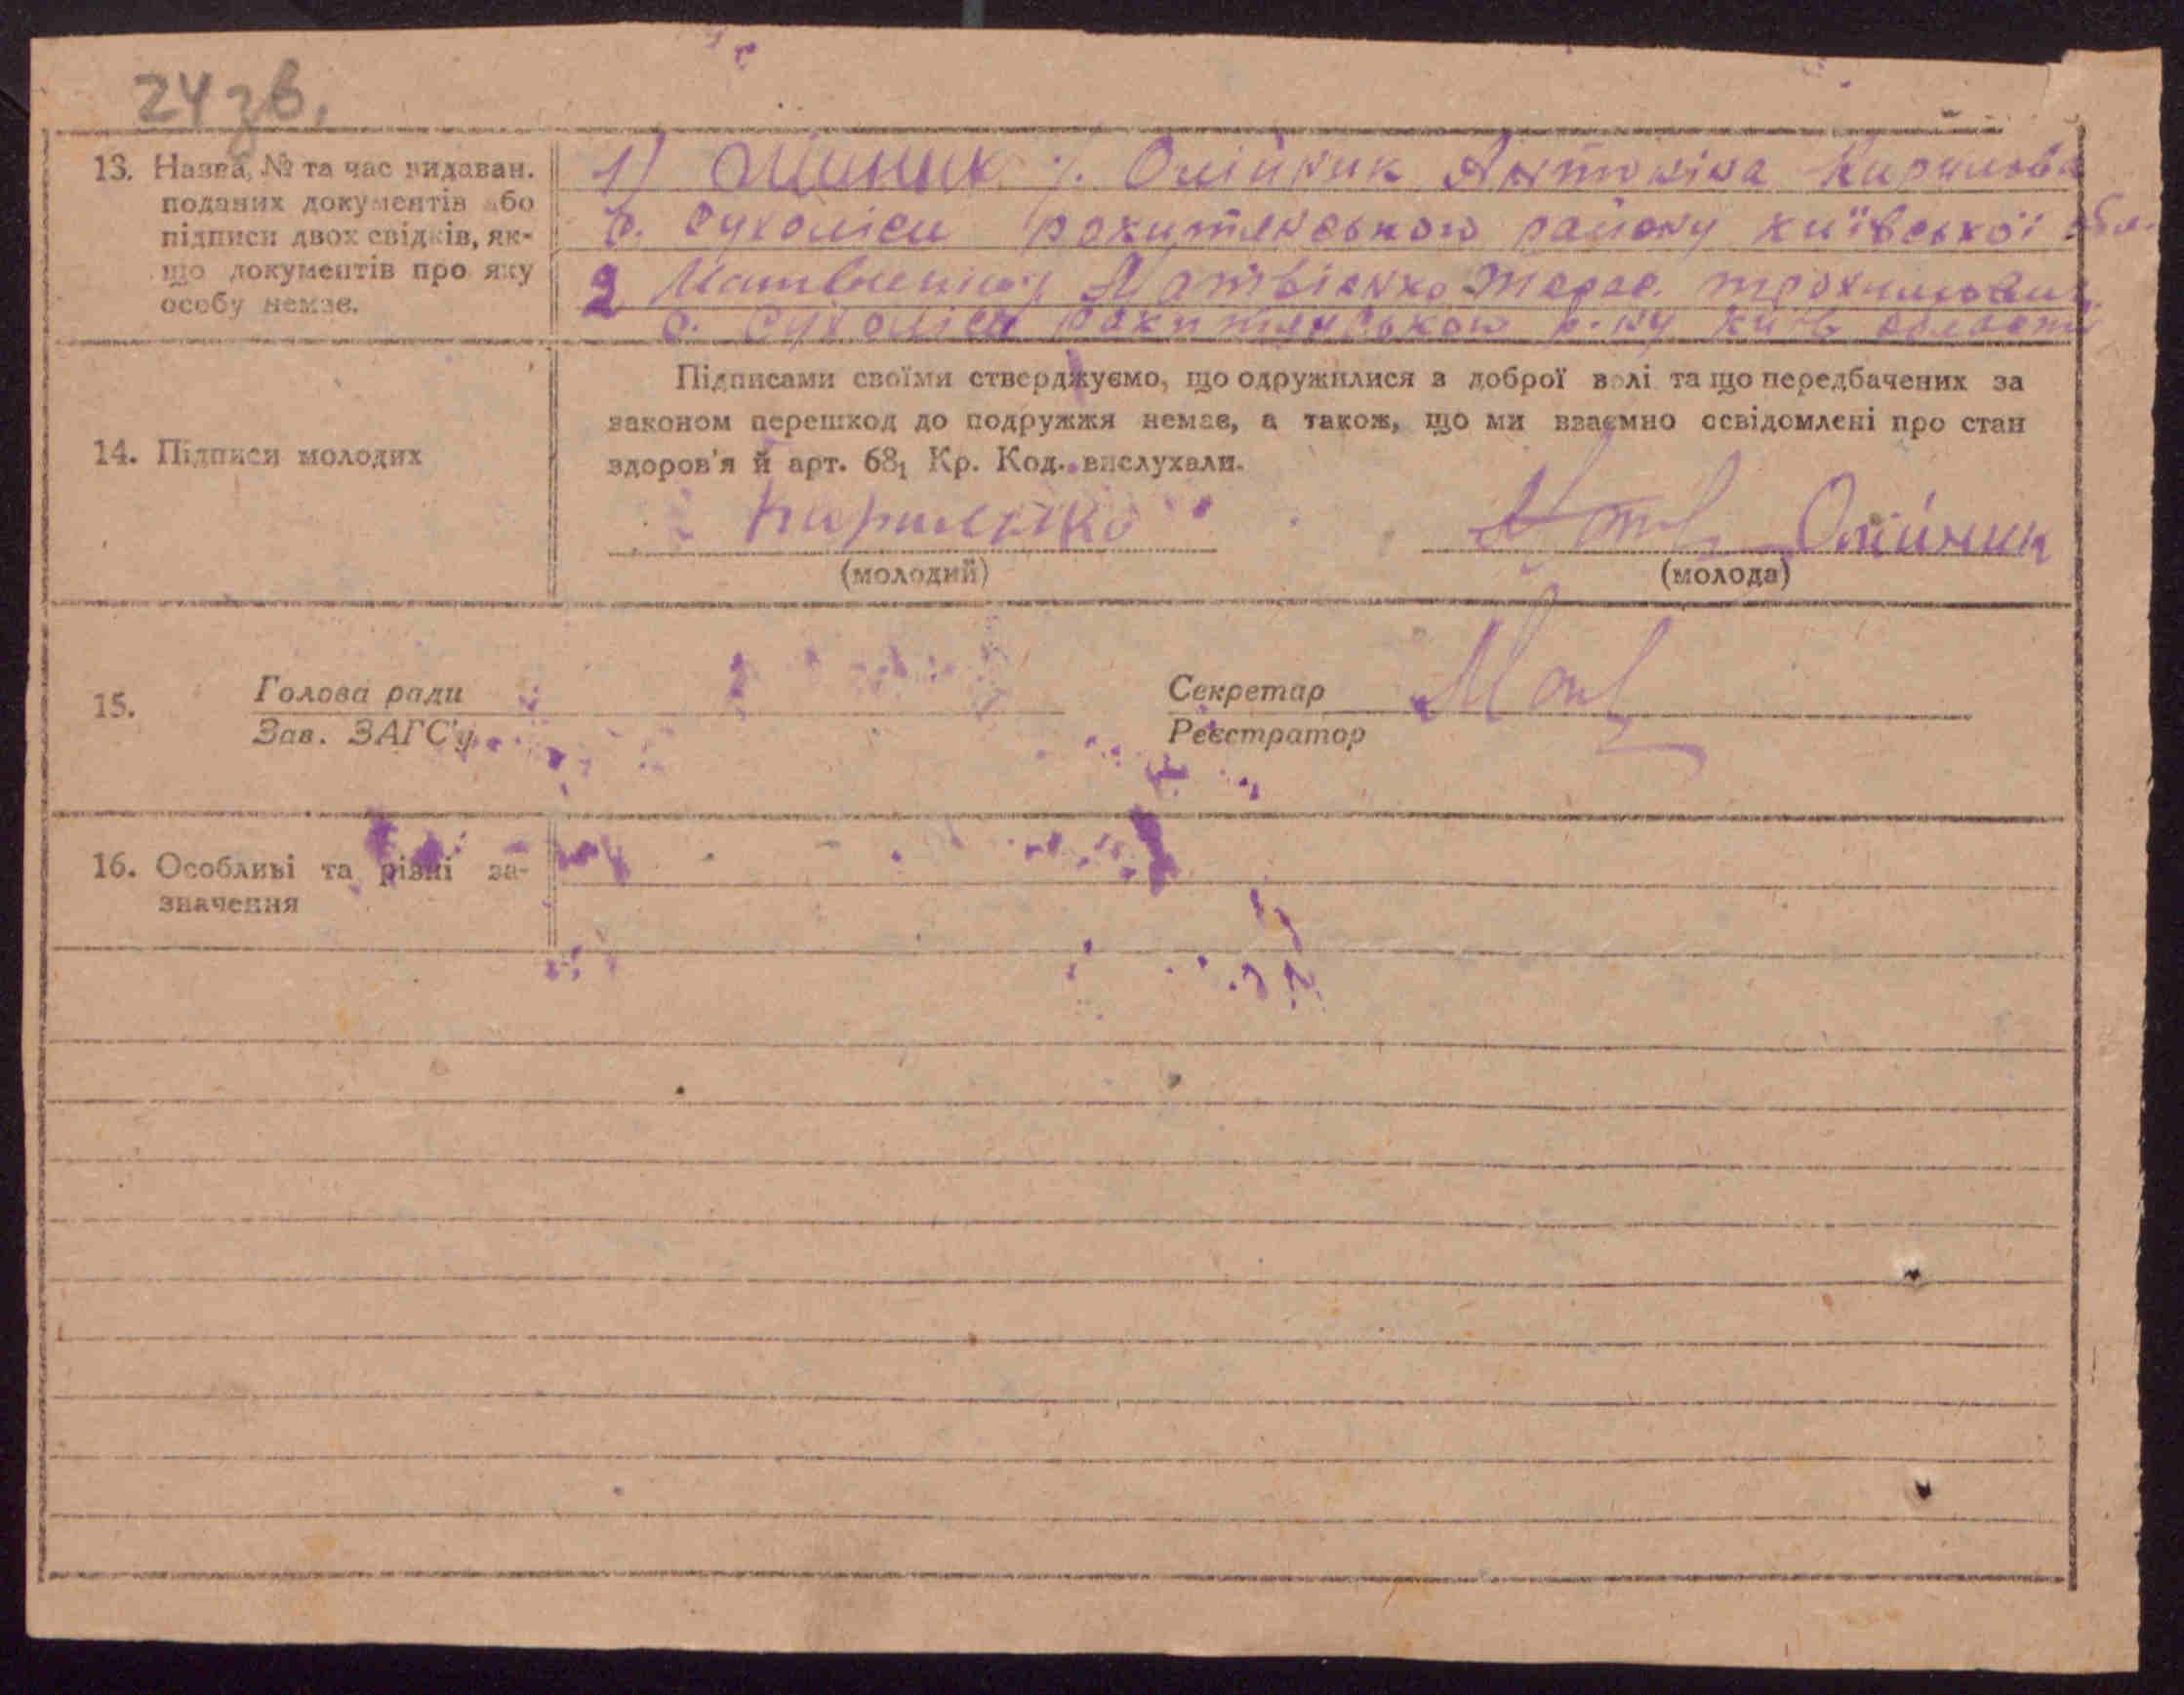 24 зв.
13. Назва, № та час видаван. поданих документів або підписи двох свідків, якщо документів про яку особу немає.
1) Олійник /. Олійник Антоніна Кирилова
с. Сухоліси рокитянською району київської обл.
2 Матвієнко Тарас
с. Сухоліси рокитянською р-ну київ області
Підписами своїми стверджуємо, що одружилися з доброї волі та що передбачених за
законом перешкод до подружжя немає, а також, що ми взаємно освідомлені про стан
здоров'я й арт. 68₁ Кр. Код. вислухали.
14. Підписи молодих
Кириленко
Олійник
(молодий) (молода)
15. Голова ради
Зав. ЗАГС'у
Секретар Матв
Реєстратор
16. Особливі та різні за-
значення